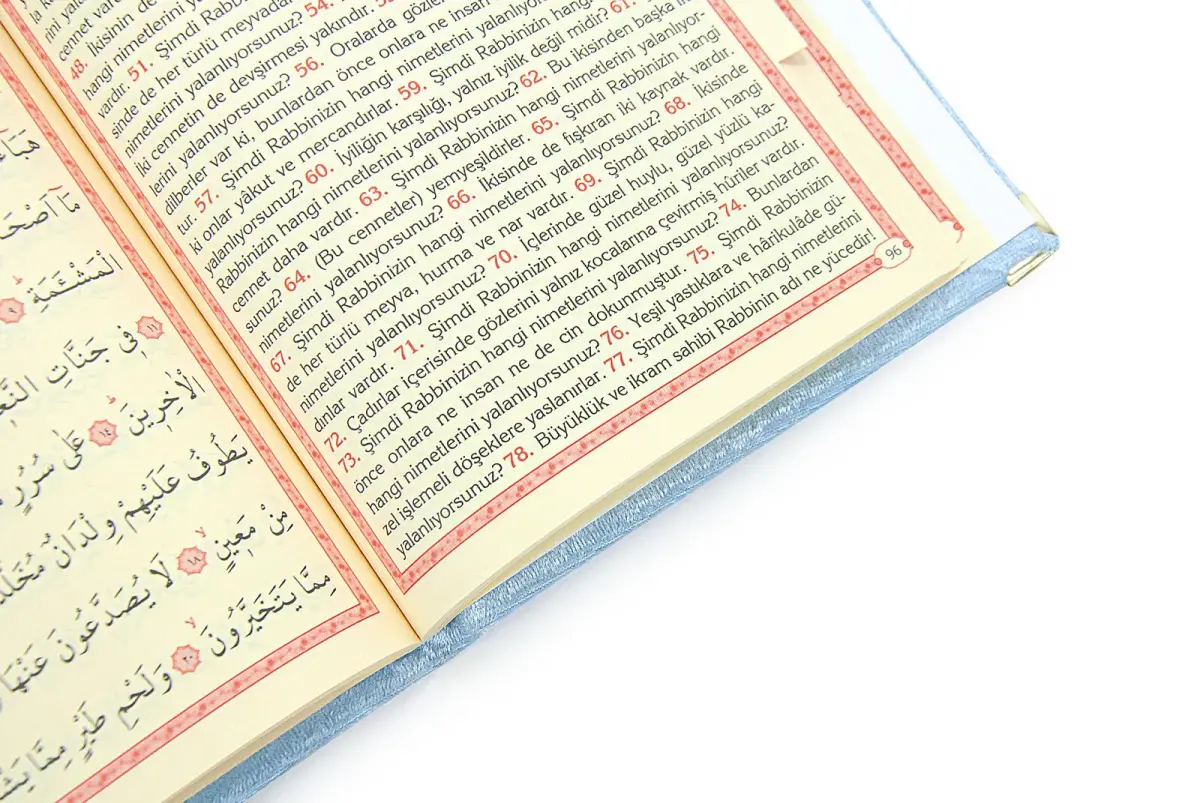 مَٓا اَصْحَا
الْمَشْـَٔمَةِ ٩
١١ فٖي جَنَّاتِ
الْاٰخِرٖينَ ١٤ عَلٰى سُرُرٍ
يَطُوفُ عَلَيْهِمْ وِلْدَانٌ
مِنْ مَعٖينٍ ١٨ لَا يُصَدَّعُونَ عَنْهَا
مِمَّا يَتَخَيَّرُونَ ٢٠ وَلَحْمِ طَيْرٍ مِمَّا
cennet
48. İkisinin de
hangi nimetlerini
vardır. 51. Şimdi
sinde de her türlü meyvadan
nimetlerini yalanlıyorsunuz? 54.
iki cennetin de devşirmesi yakındır.
lerini yalanlıyorsunuz? 56. Oralarda
dilberler var ki, bunlardan önce onlara ne insan
tur. 57. Şimdi Rabbinizin hangi nimetlerini
ki onlar yâkut ve mercandırlar. 59. Şimdi Rabbinizin hangi
yalanlıyorsunuz? 60. İyiliğin karşılığı, yalnız iyilik değil midir? 61.
Rabbinizin hangi nimetlerini yalanlıyorsunuz? 62. Bu ikisinden başka
cennet daha vardır. 63. Şimdi Rabbinizin hangi nimetlerini yalanlıyor-
sunuz? 64. (Bu cennetler) yemyeşildirler. 65. Şimdi Rabbinizin hangi
nimetlerini yalanlıyorsunuz? 66. İkisinde de fışkıran iki kaynak vardır.
67. Şimdi Rabbinizin hangi nimetlerini yalanlıyorsunuz? 68. İkisinde
de her türlü meyva, hurma ve nar vardır. 69. Şimdi Rabbinizin hangi
nimetlerini yalanlıyorsunuz? 70. İçlerinde güzel huylu, güzel yüzlü ka-
dınlar vardır. 71. Şimdi Rabbinizin hangi nimetlerini yalanlıyorsunuz?
72. Çadırlar içerisinde gözlerini yalnız kocalarına çevirmiş hûriler vardır.
73. Şimdi Rabbinizin hangi nimetlerini yalanlıyorsunuz? 74. Bunlardan
önce onlara ne insan ne de cin dokunmuştur. 75. Şimdi Rabbinizin
hangi nimetlerini yalanlıyorsunuz? 76. Yeşil yastıklara ve hârikulâde gü-
zel işlemeli döşeklere yaslanırlar. 77. Şimdi Rabbinizin hangi nimetlerini
yalanlıyorsunuz? 78. Büyüklük ve ikram sahibi Rabbinin adı ne yücedir!
96